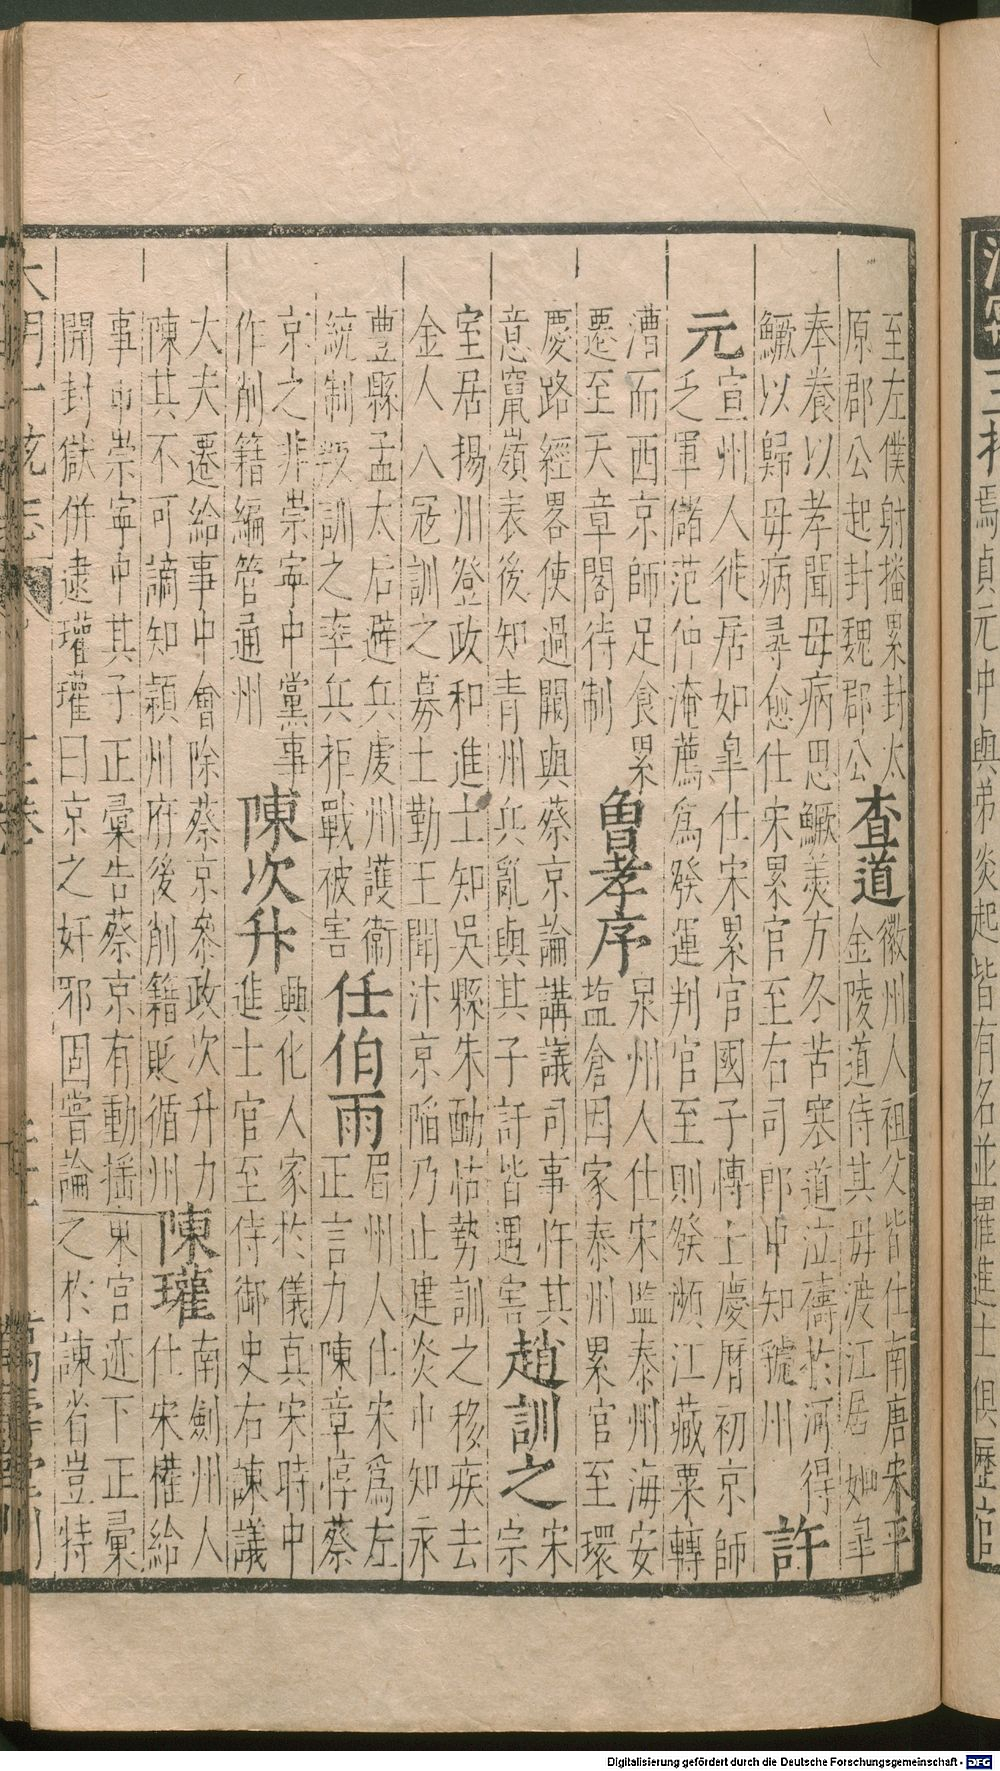 三相焉貞元中與弟炎起皆有名並擢進士俱歷官
至左僕射播累封太
原郡公起封魏郡公
查道
徽州人祖父皆仕南唐宋平
金陵道侍其母渡江居如皐
奉養以孝聞母病思鱖羹方冬苦寒道泣禱於河得
鱖以歸母病尋愈仕宋累官至右司郎中知虢州
許
元
宣州人徙居如皐仕宋累官國子博士慶曆初京師
乏軍儲范仲淹薦爲發運判官至則發瀕江藏粟轉
漕而西京師足食累
遷至天章閣待制
魯孝序
泉州人仕宋監泰州海安
塩倉因家泰州累官至環
慶路經畧使過闕與蔡京論講議司事忤其
意竄嶺表後知青州兵亂與其子訏皆遇害
趙訓之
宋
宗
室居揚州登政和進士知吳縣朱勔怙勢訓之移疾去
金人入冦訓之募士勤王聞汴京陷乃止建炎中知永
豐縣孟太后避兵虔州護衞
統制叛訓之率兵拒戰被害
任伯雨
眉州人仕宋爲左
正言力陳章惇蔡
京之非崇寧中黨事
作削籍編管通州
陳次升
興化人家於儀真宋時中
進士官至侍御史右諫議
大夫遷給事中會除蔡京參政次升力
陳其不可謫知潁州府後削籍貶循州
陳瓘
南劍州人
仕宋權給
事中崇寧中其子正彙告蔡京有動搖東宮迹下正彙
開封獄併逮瓘瓘曰京之奸邪固嘗論之於諫省豈特
大明一統志
萬壽堂刊
Digitalisierung gefördert durch die Deutsche Forschungsgemeinschaft - DFG